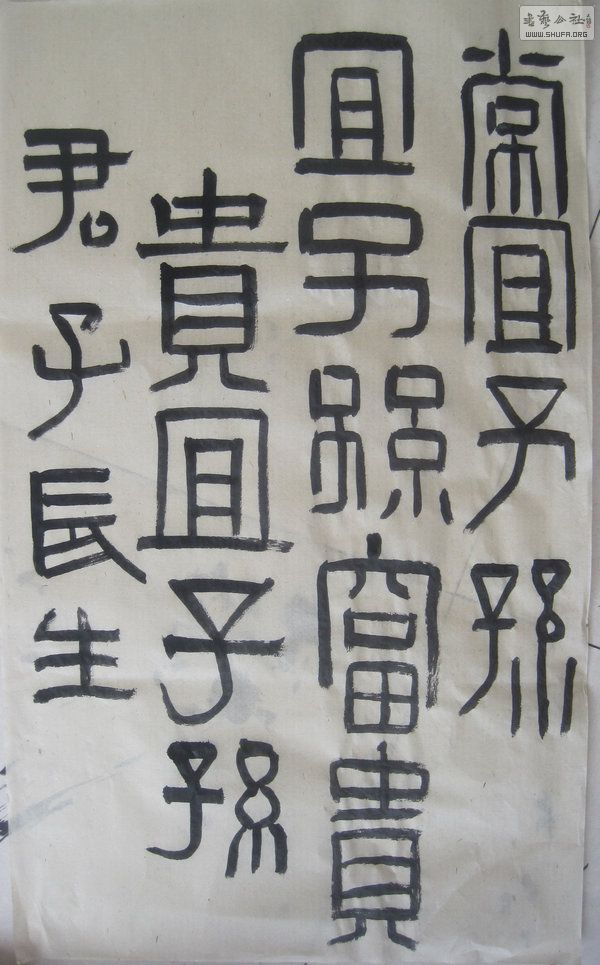 常宜子孫
宜子孫富貴
貴宜子孫
君子長生
書藝公社
WWW.SHUFA.ORG